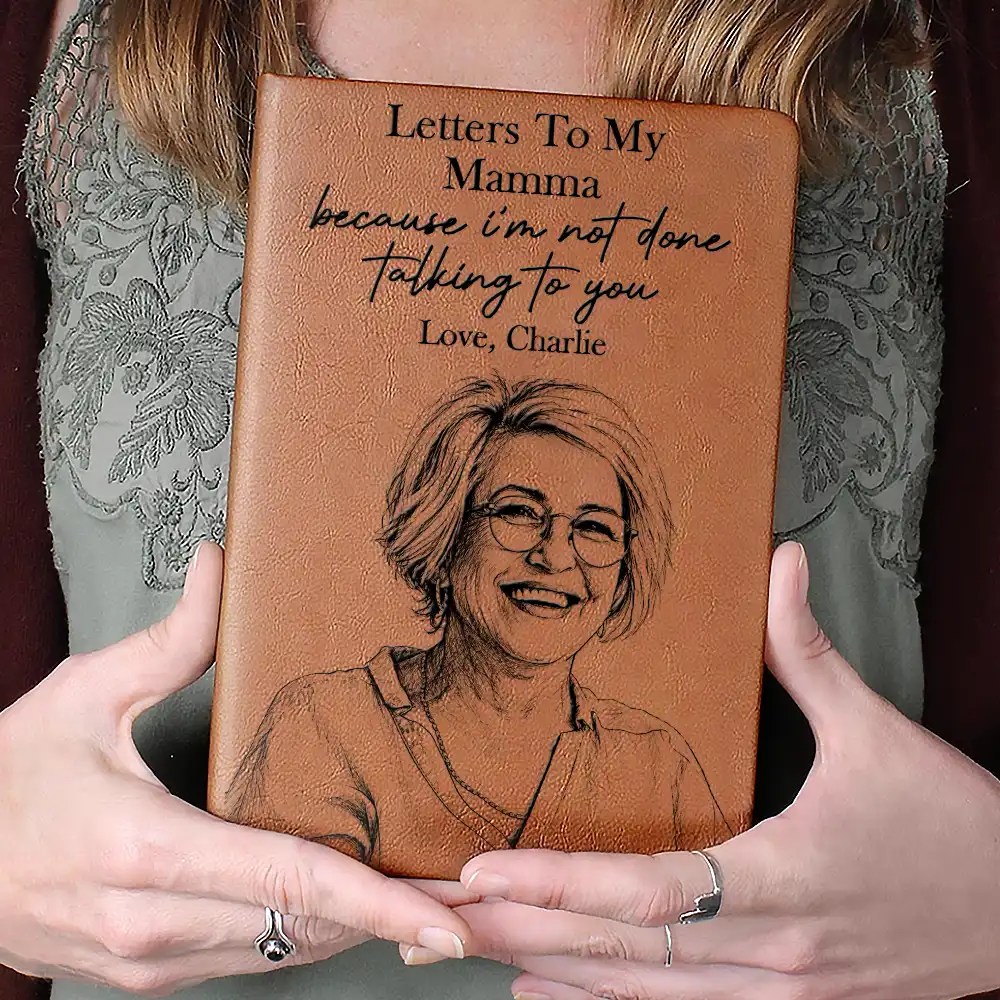 Letters To My
Mamma
because i'm not done
talking to you
Love, Charlie